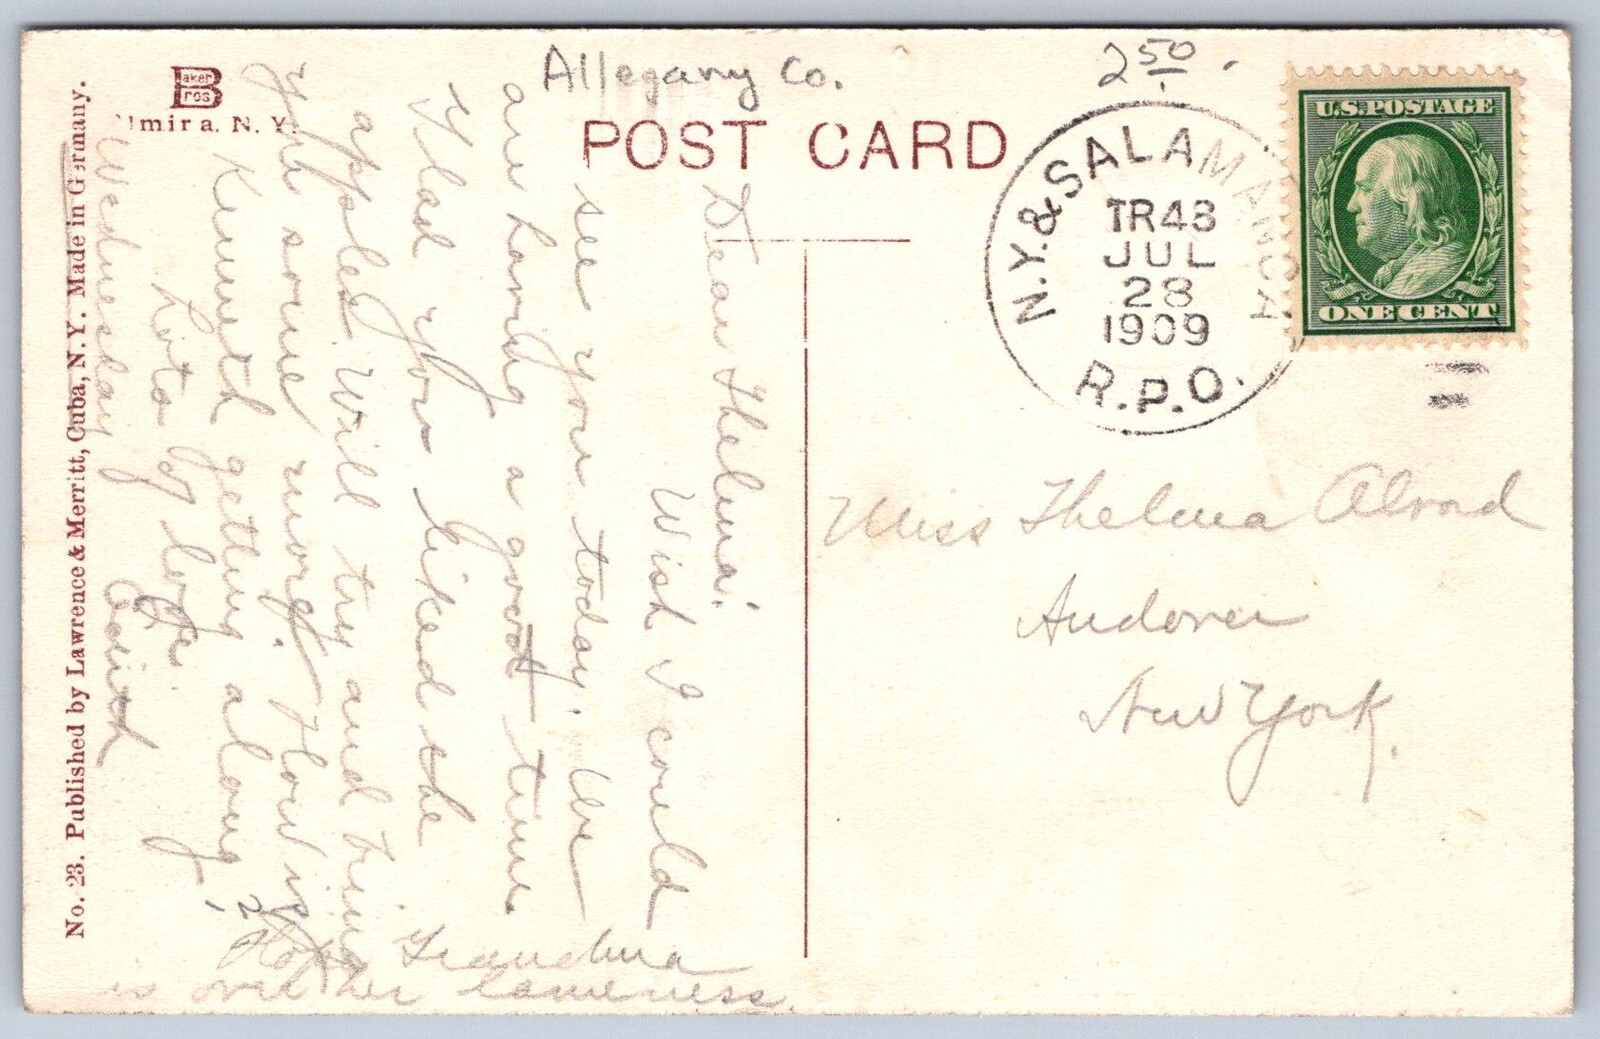 Allegany Co.
2 50.
Baker Bros
Elmira. N. Y.
POST CARD
U.S. POSTAGE
ONE CENT
N.Y. & SALAMANCA
TR43
JUL
28
1909
R.P.O.
No. 23. Published by Lawrence & Merritt, Cuba, N. Y. Made in Germany.
Miss Thelma Alvord
Andover
New York.
Dear Thelma:
Wish I could
see you today. We
are having a good time
Glad you liked the
apples. Will try and bring
you some more. How is
Kenneth getting along?
Lots of love,
Edith
Wednesday
Hope Grandma
is over her lameness.